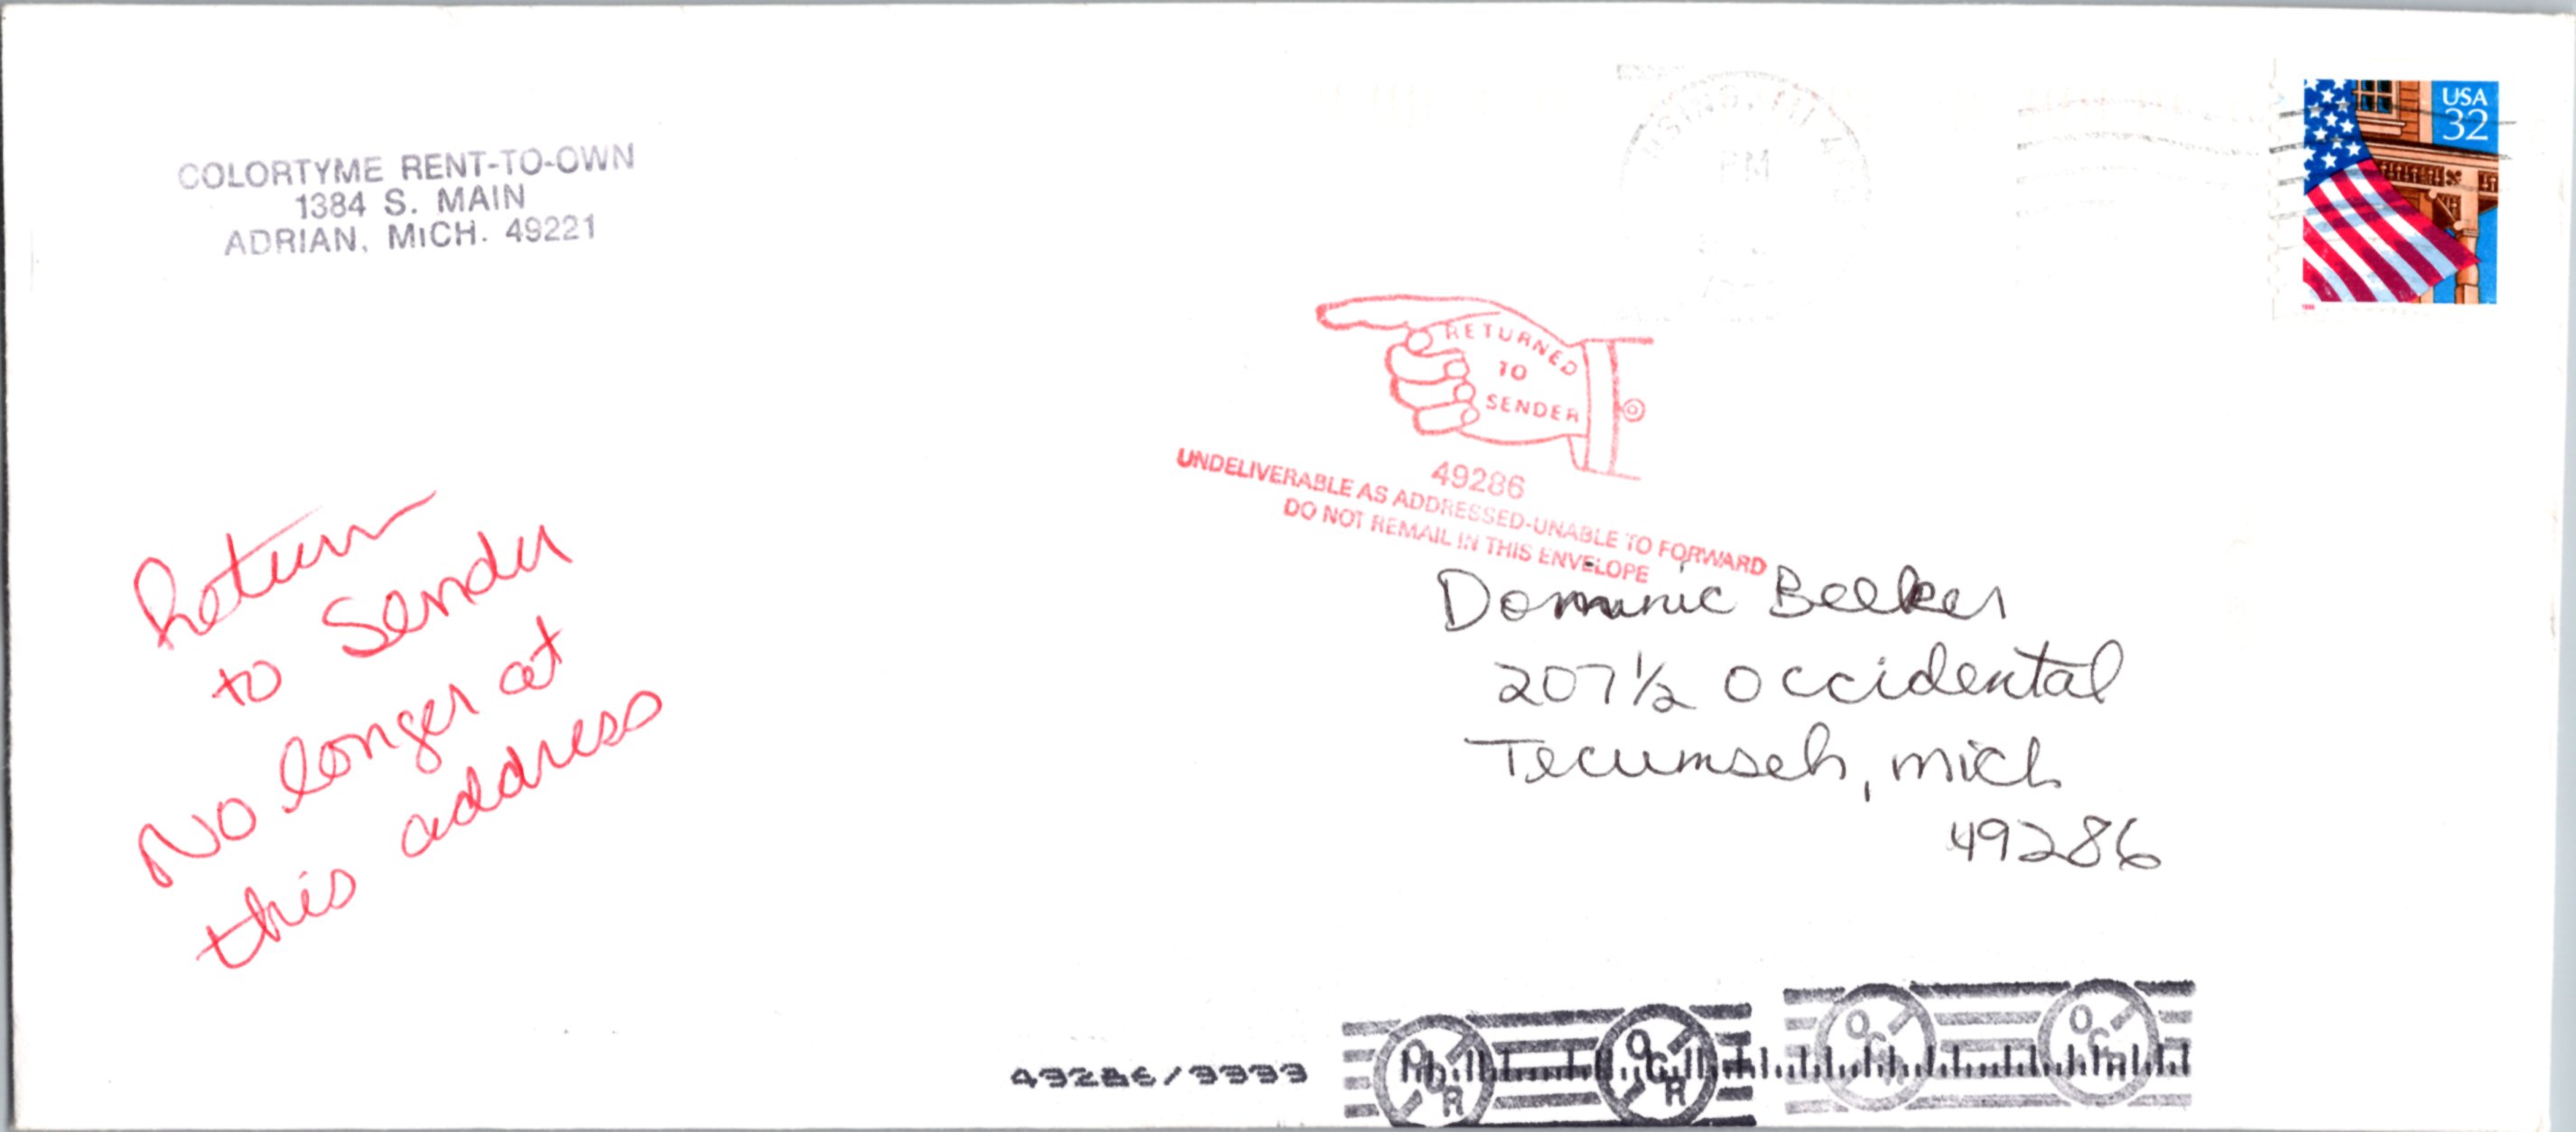 COLORTYME RENT-TO-OWN
1384 S. MAIN
ADRIAN, MICH. 49221
PM
USA
32
RETURNED
TO
SENDER
49286
UNDELIVERABLE AS ADDRESSED-UNABLE TO FORWARD
DO NOT REMAIL IN THIS ENVELOPE
Return
to Sender
No longer at
this address
Dominic Beeker
207 1/2 Occidental
Tecumseh, mich
49286
49286/9999
OCR
OCR
OCR
OCR